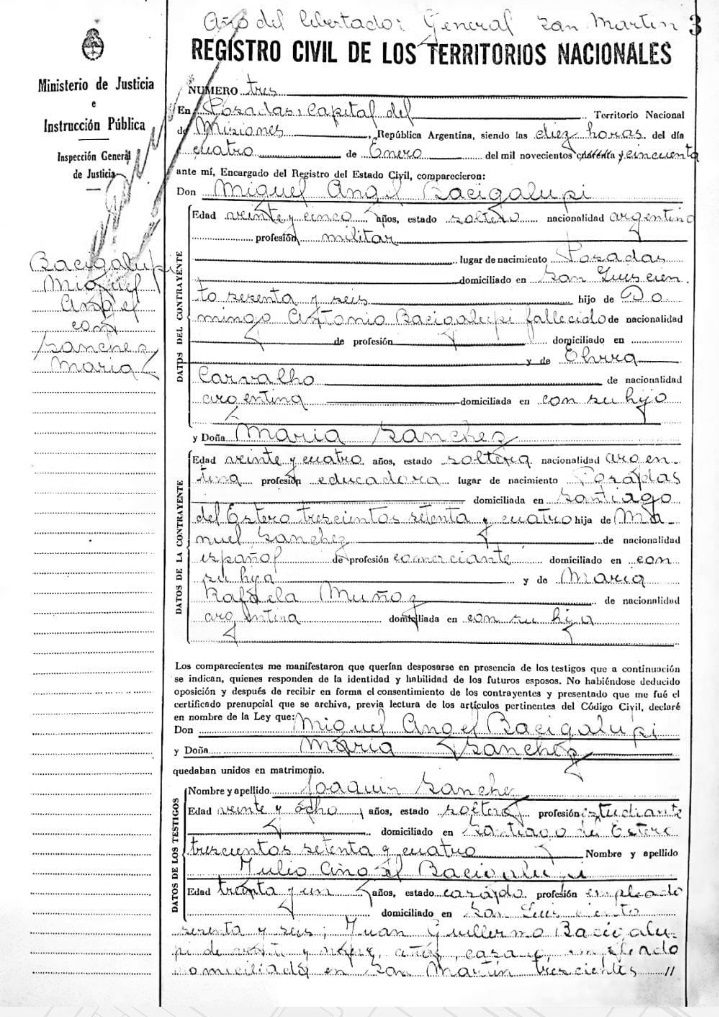 Año del Libertador General San Martin 3
Ministerio de Justicia
e
Instrucción Pública
Inspección General
de Justicia
REGISTRO CIVIL DE LOS TERRITORIOS NACIONALES
NUMERO tres
En Posadas, Capital del Territorio Nacional
de Misiones, República Argentina, siendo las diez horas del día
cuatro de Enero del mil novecientos cuarenta y cincuenta
ante mí, Encargado del Registro del Estado Civil, comparecieron:
Don Miguel Angel Bacigalupi
Bacigalupi
Miguel
Angel
con
Sanchez
Maria
DATOS DEL CONTRAYENTE
Edad veinte y cinco años, estado soltero nacionalidad argentino
profesión militar
lugar de nacimiento Posadas
domiciliado en San Luis cien
to sesenta y seis hijo de Do
mingo Antonio Bacigalupi fallecido de nacionalidad
de profesión domiciliado en
y de
Carvalho de nacionalidad
argentina domiciliada en con su hijo
y Doña Maria Sanchez
DATOS DE LA CONTRAYENTE
Edad veinte y cuatro años, estado soltera nacionalidad argen
tina profesión educadora lugar de nacimiento Posadas
domiciliada en Santiago
del Estero trescientos setenta y cuatro hija de Ma
nuel Sanchez de nacionalidad
español de profesión comerciante domiciliado en con
su hija y de Maria
Rafaela Muñoz de nacionalidad
argentina domiciliada en con su hija
Los comparecientes me manifestaron que querían desposarse en presencia de los testigos que a continuación
se indican, quienes responden de la identidad y habilidad de los futuros esposos. No habiéndose deducido
oposición y después de recibir en forma el consentimiento de los contrayentes y presentado que me fué el
certificado prenupcial que se archiva, previa lectura de los artículos pertinentes del Código Civil, declaré
en nombre de la Ley que:
Don Miguel Angel Bacigalupi
y Doña Maria Sanchez
quedaban unidos en matrimonio.
DATOS DE LOS TESTIGOS
Nombre y apellido Joaquin Sanchez
Edad veinte y ocho años, estado soltero profesión estudiante
domiciliado en Santiago del Estero
trescientos setenta y cuatro Nombre y apellido
Julio Angel Bacigalupi
Edad treinta y un años, estado casado profesión empleado
domiciliado en San Luis ciento
sesenta y seis; Juan Guillermo Bacigalu-
pi de veinte y nueve años, casado, empleado
domiciliado en San Martin trescientos //